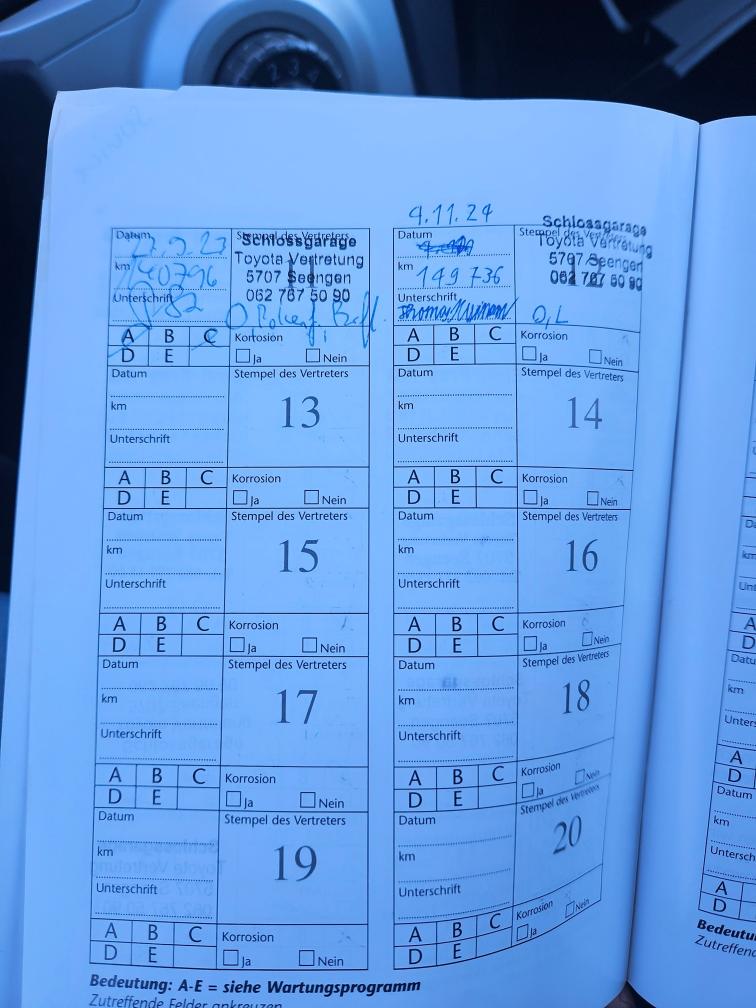 4.11.24
Datum
Stempel des Vertreters
Schlossgarage
Toyota Vertretung
5707 Seengen
062 767 50 90
km
140796
Unterschrift
A B C
D E
Korrosion
Ja Nein
Datum
Stempel des Vertreters
Schlossgarage
Toyota Vertretung
5707 Seengen
062 767 50 90
km
149 736
Unterschrift
A B C
D E
Korrosion
Ja Nein
Datum
Stempel des Vertreters
km
13
Unterschrift
A B C
D E
Korrosion
Ja Nein
Datum
Stempel des Vertreters
km
14
Unterschrift
A B C
D E
Korrosion
Ja Nein
Datum
Stempel des Vertreters
km
15
Unterschrift
A B C
D E
Korrosion
Ja Nein
Datum
Stempel des Vertreters
km
16
Unterschrift
A B C
D E
Korrosion
Ja Nein
Datum
Stempel des Vertreters
km
17
Unterschrift
A B C
D E
Korrosion
Ja Nein
Datum
Stempel des Vertreters
km
18
Unterschrift
A B C
D E
Korrosion
Ja Nein
Datum
Stempel des Vertreters
km
19
Unterschrift
A B C
D E
Korrosion
Ja Nein
Datum
Stempel des Vertreters
km
20
Unterschrift
A B C
D E
Korrosion
Ja Nein
Bedeutung: A-E = siehe Wartungsprogramm
Zutreffende Felder ankreuzen